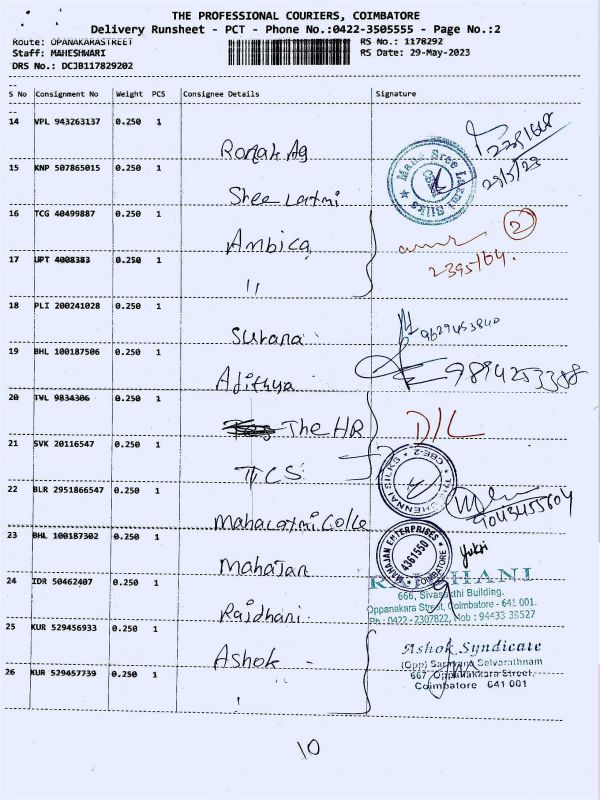 THE PROFESSIONAL COURIERS, COIMBATORE
Delivery Runsheet - PCT - Phone No.:0422-3505555 - Page No.:2
Route: OPANAKARASTREET
RS No.: 1178292
Staff: MAHESHWARI
RS Date: 29-May-2023
DRS No.: DCJB117829202
S No Consignment No Weight PCS Consignee Details Signature
14 VPL 943263137 0.250 1
Ronak Ag
29/5/23
15 KNP 507865015 0.250 1
Shree Laxmi
Maha Sree Laxmi Silks
16 TCG 40499887 0.250 1
Ambica
2
2395164.
17 UPT 4008383 0.250 1
"
18 PLI 200241028 0.250 1
Surana
9629453840
19 BHL 100187506 0.250 1
Adithya
9894253388
20 TVL 9834306 0.250 1
The HR
D/L
21 SVK 20116547 0.250 1
TCS
THE CHENNAI SILKS * CBE-2 *
22 BLR 2951866547 0.250 1
Mahalaxmi Colle
9043455604
23 BHL 100187302 0.250 1
Mahajan
MAHAJAN ENTERPRISES
4361550
COIMBATORE
24 IDR 50462407 0.250 1
Rajdhani
HANI
666, Building,
Oppanakara Street, Coimbatore - 641 001.
Ph : 0422 - 2307822, Mob : 94433 38527
25 KUR 529456933 0.250 1
Ashok
Ashok Syndicate
(Opp) Selvarathnam
667 Oppanakkara Street,
Coimbatore 641 001
26 KUR 529457739 0.250 1
"
10